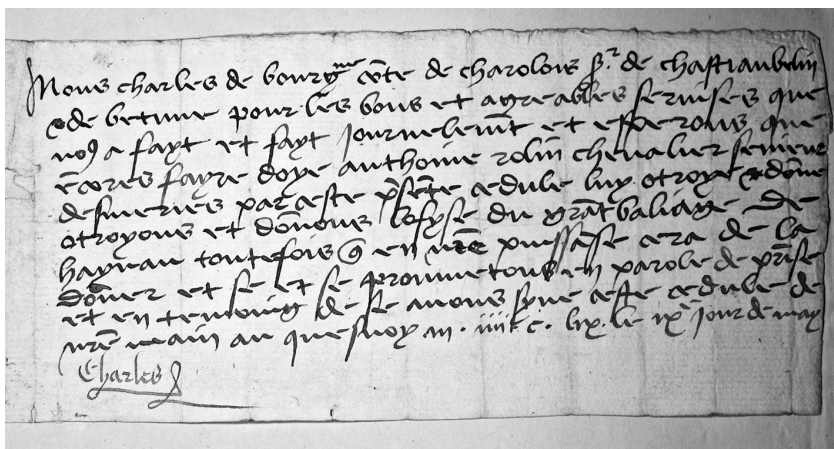 Nous charles de bourgne cōte de charolois Sr. de chastiaubelin
& de betune pour les bons et agreables servises que
no9 a fayt et fayt journelemt et esperons que
ēcores fayre doye anthoine rolin chevalier seneur
desmeries par ceste psēte cedule luy otroye & dōne
otroyons et dōnons lofyse du grāt baliage de
haynau toutefois en nrē puissāse cera de la
dōner et se et se prommetons en parole de prīse
et en temoing de se avons syne ceste cedule de
nrē main au quesnoy m . iiii c . lix . le ix jour de may
Charles